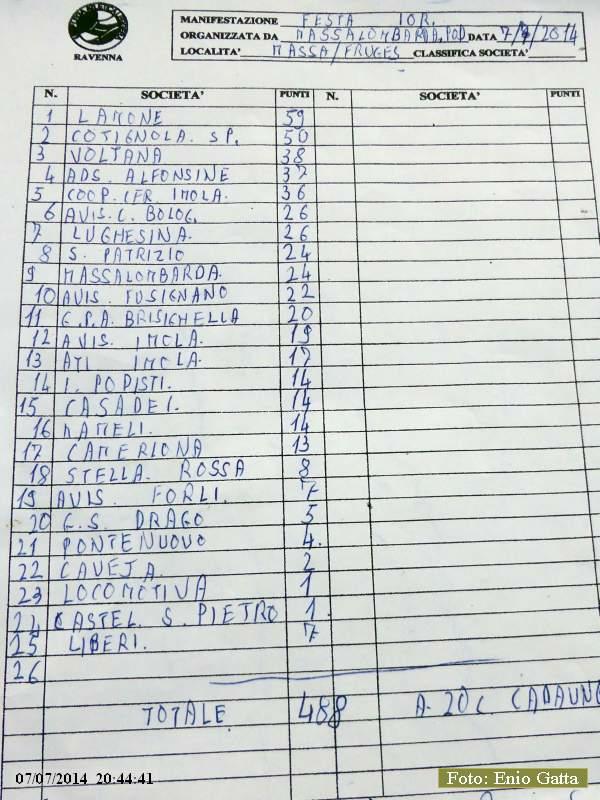 RAVENNA
MANIFESTAZIONE FESTA IOR.
ORGANIZZATA DA MASSALOMBARDA. POD DATA 7/7/2014
LOCALITA' MASSA/FRUGES CLASSIFICA SOCIETA'
N. SOCIETA' PUNTI N. SOCIETA' PUNTI
1 LAMONE 59
2 COTIGNOLA. SP. 50
3 VOLTANA 38
4 ADS. ALFONSINE 37
5 COOP. CER. IMOLA. 36
6 AVIS. C. BOLOG. 26
7 LUGHESINA. 26
8 S. PATRIZIO 24
9 MASSALOMBARDA. 24
10 AVIS. FUSIGNANO 22
11 G.P.A. BRISIGHELLA 20
12 AVIS. IMOLA. 19
13 ATL IMOLA. 17
14 I. PODISTI. 14
15 CASADEI. 14
16 MAMELI. 14
17 CAMERLONA 13
18 STELLA. ROSSA 8
19 AVIS. FORLI. 7
20 G.S. DRAGO 5
21 PONTENUOVO 4.
22 CAVEJA 2
23 LOCOMOTIVA 1
24 CASTEL. S. PIETRO 1
25 LIBERI. 7
26
TOTALE 488 A. 20 C CADAUNO
07/07/2014 20:44:41
Foto: Enio Gatta